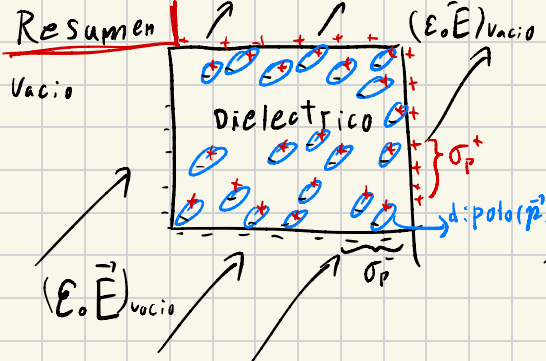 Resumen
(ε₀E⃗)vacio
Vacio
Dielectrico
σp⁺
dipolo(p⃗)
(ε₀E⃗)vacio
σp⁻